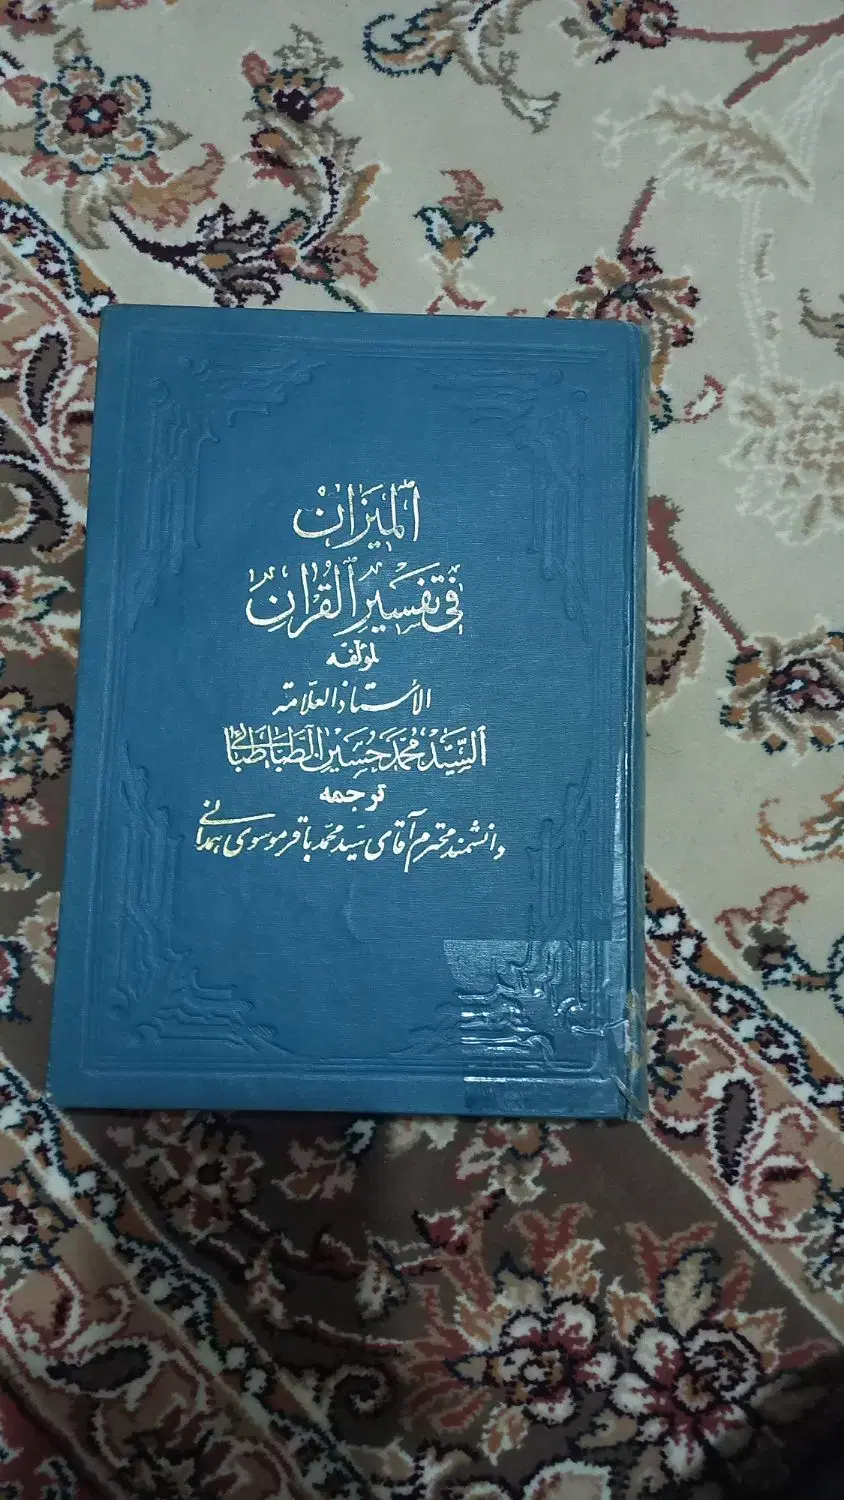 الميزان
في تفسير القرآن
لمؤلفه
الأستاذ العلامة
السيد محمد حسين الطباطبائي
ترجمه
دانشمند محترم آقای سید محمد باقر موسوی همدانی